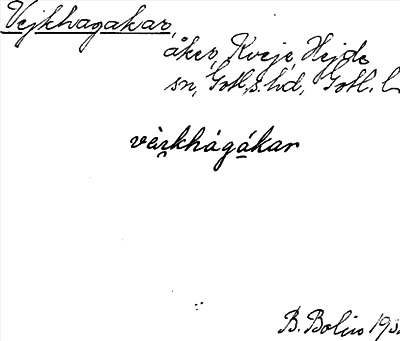 Vejkhagakar,
åker, Kveje, Hejde
sn, Gotl. s. hd, Gotl. l
vèrkhágákar
B. Bolin 193